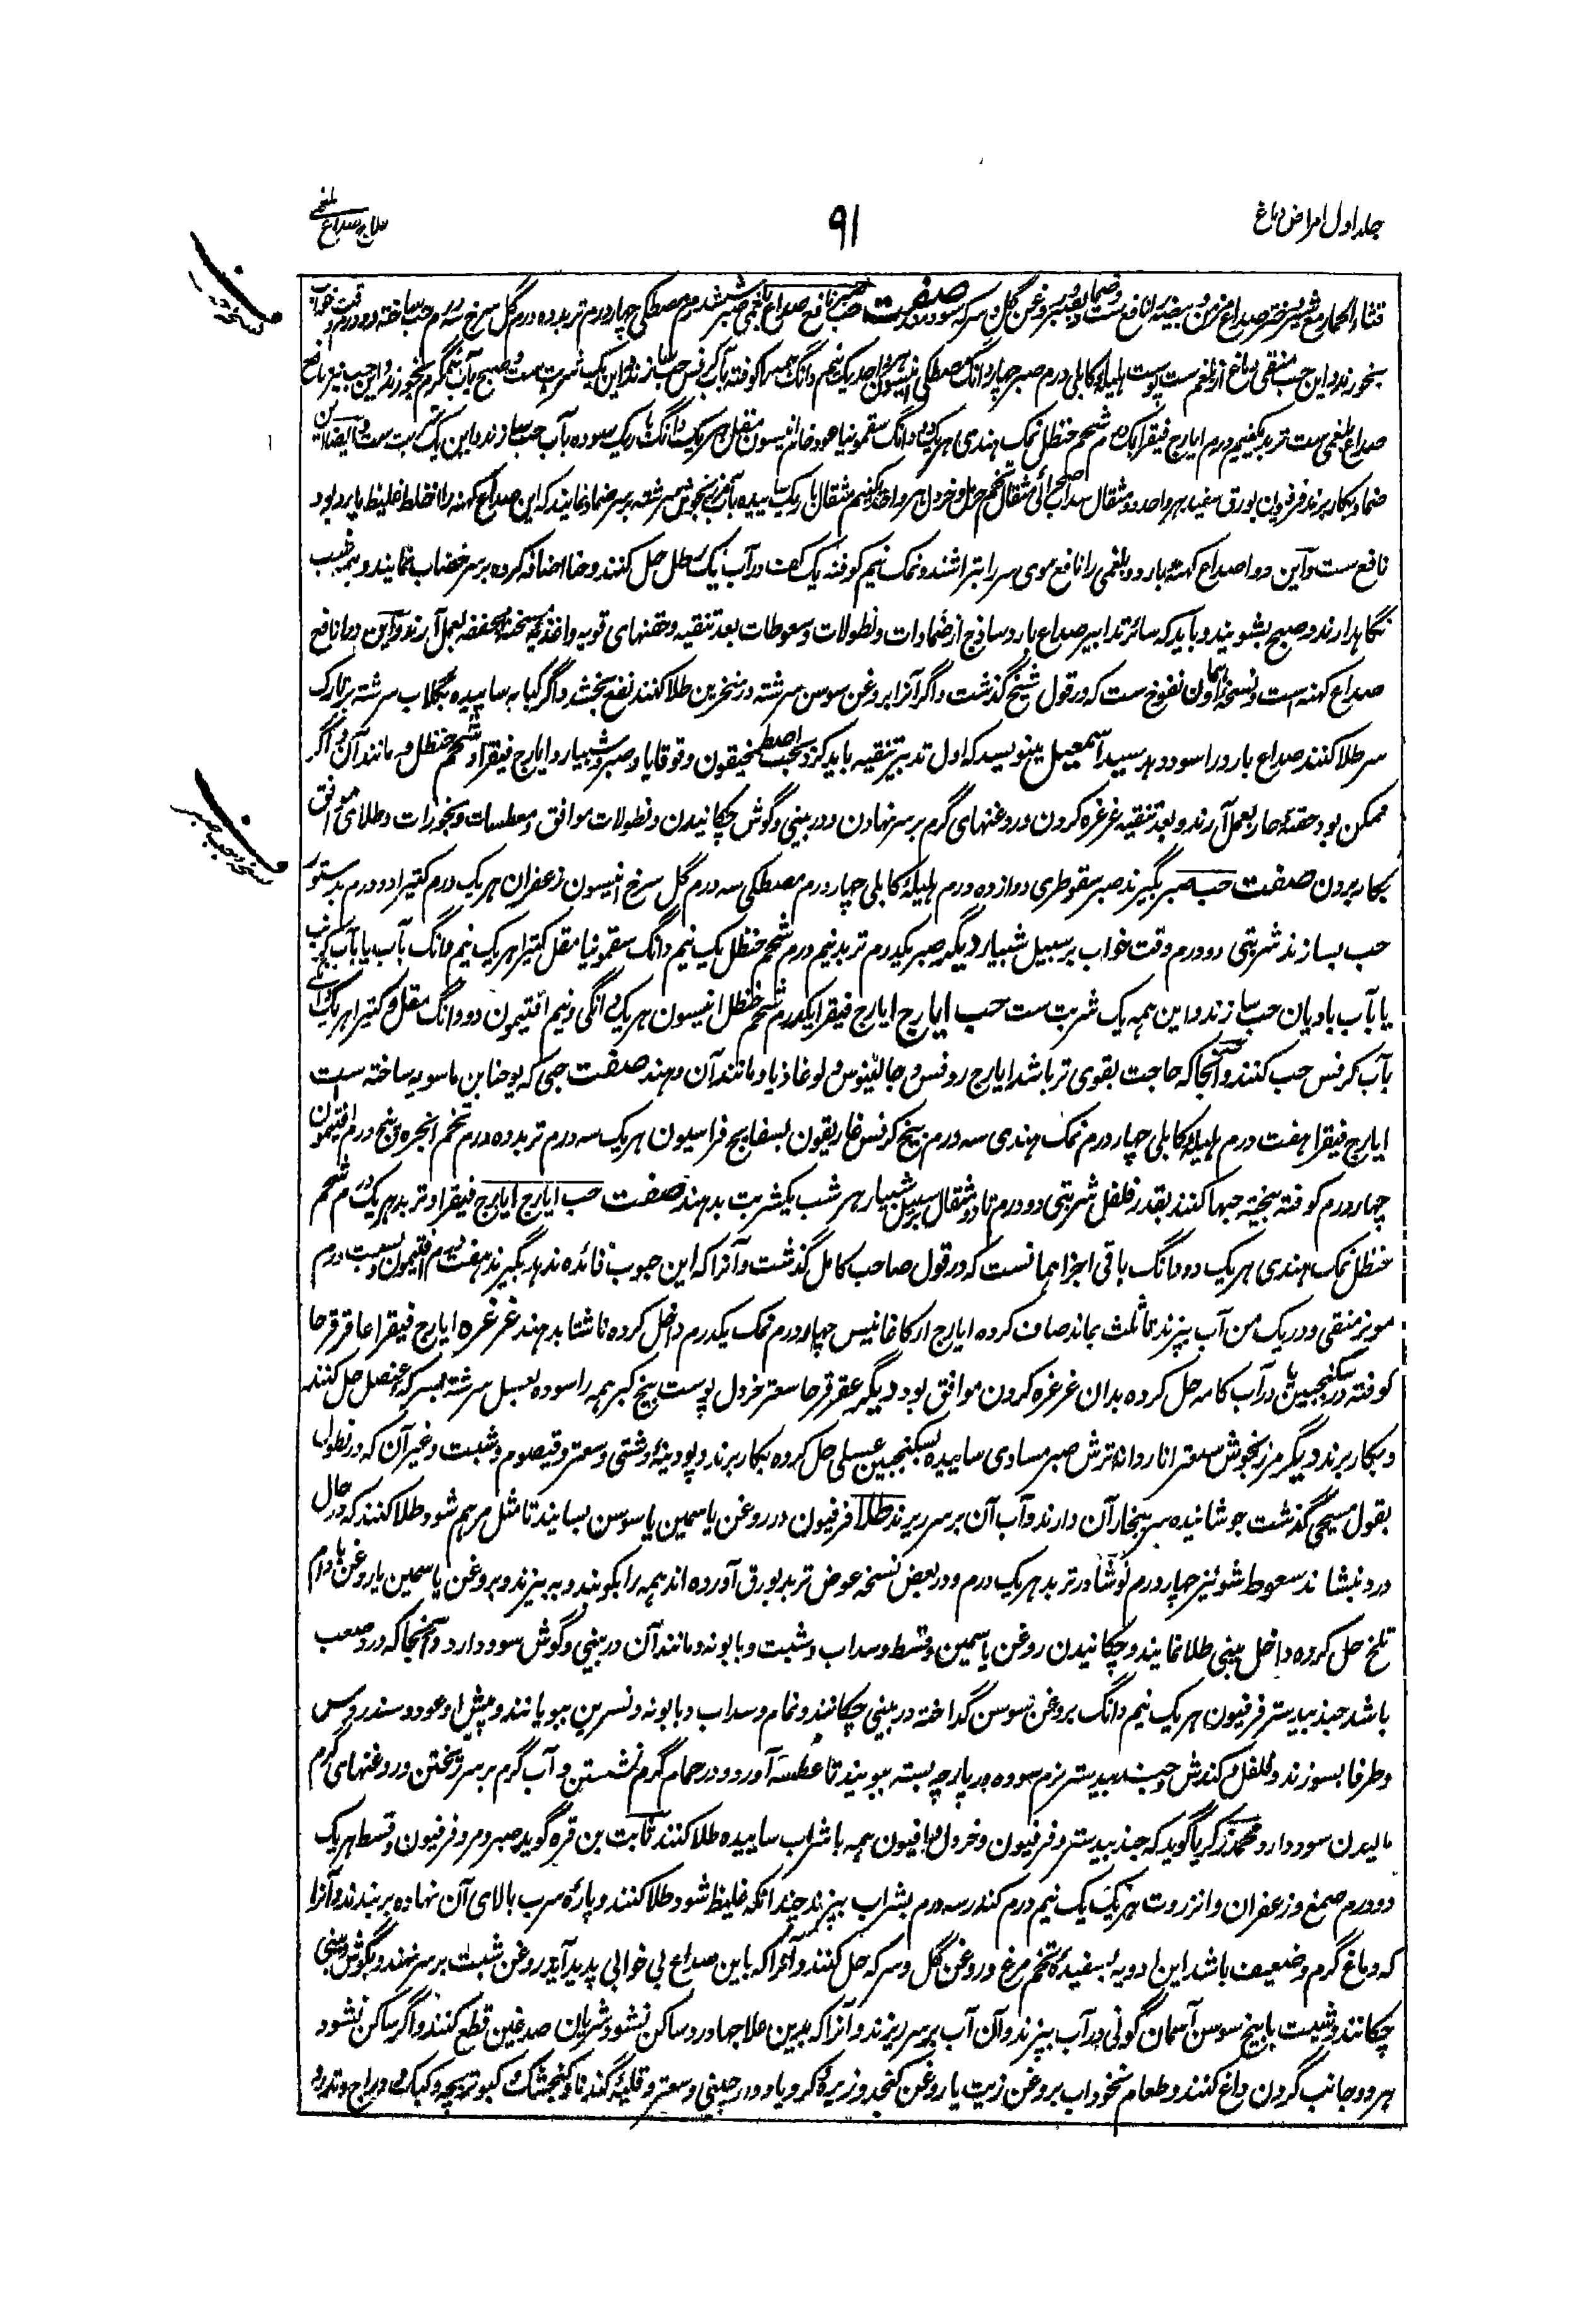 جلد اول امراض دماغ
۹۱
علاج صداع بلغمی
قثاء الحمار مع شیر دختر صداع مزمن و بیضه را نافع ست و ضماد بروغن گل و سرکه سود دهد صفت حب صبر نافع صداع بلغمی صبر ششدرم مصطکی چهار درم تربد ده درم گل سرخ سه درم حب ساخته دو درم وقت خواب
بخورند و این حب منقی دماغ از بلغم ست پوست هلیله کابلی درم صبر چهار دانگ مصطکی انیسون هر واحد یک نیم دانگ همه را کوفته بآب کرفس حب سازند و این یک شربت ست و صبح بآب گرم بخورند و این حب نیز نافع
صداع بلغمی ست تربد یکنیم درم ایارج فیقرا یک درم شحم حنظل نمک هندی هر یک دو دانگ سقمونیا عود خام انیسون مقل هر یک دانگ باریک سوده بآب حب سازند و این یک شربت ست و ایضا این
ضماد بکار برند فرفیون بورق سفید هر واحد دو مثقال سداب صحرائی مثقال تخم حرمل و خردل هر واحد یکنیم مثقال باریک سائیده بآب مرزنجوش سرشته بر سر ضماد نمایند که این صداع کهنه را از خلط غلیظ یا برد بود
نافع ست و این دوا صداع کهنه بارد و بلغمی را نافع موی سر را بتراشند و نمک نیم کوفته یک کف در آب یک رطل حل کنند و حنا اضافه کرده بر سر خضاب نمایند و همه شب
نگاهدارند و صبح بشویند و باید که سائر تدابیر صداع بارد ساذج از ضمادات و نطولات و سعوطات بعد تنقیه و حقنهای قویه و اغذیه مسخنه مجففه بعمل آرند و این دوا نافع
صداع کهنه است و نسخه او همان نفوخ ست که در قول شیخ گذشت و اگر آنرا بروغن سوسن سرشته در منخرین طلا کنند نفع بخشد و اگر کبابه سائیده بگلاب سرشته بر تارک
سر طلا کنند صداع بارد را سود دهد سید اسمعیل مینویسد که اول تدبیر تنقیه باید کرد بحب اصطمخیقون و قوقایا و صبر و شبیار و ایارج فیقرا و شحم حنظل و مانند آن و اگر
ممکن بود حقنه حار بعمل آرند و بعد تنقیه غرغره کردن و روغنهای گرم بر سر نهادن و در بینی و گوش چکانیدن و نطولات موافق و معطسات و بخورات و طلای موافق
بکار بردن صفت حب صبر بگیرند صبر سقوطری دوازده درم هلیله کابلی چهار درم مصطکی سه درم گل سرخ انیسون زعفران هر یک درم کتیرا دو درم بدستور
حب بسازند شربتی دو درم وقت خواب بر سبیل شبیار دیگر صبر یکدرم تربد نیم درم شحم حنظل یک نیم دانگ سقمونیا مقل کتیرا هر یک نیم دانگ بآب یا بآب کرنب
یا بآب بادیان حب سازند و این همه یک شربت ست حب ایارج ایارج فیقرا یکدرم شحم حنظل انیسون هر یک دانگی و نیم افتیمون دو دانگ مقل و کتیرا هر یک دانگی
بآب کرفس حب کنند و آنجا که حاجت بقوی تر باشد ایارج روفس و جالینوس و لوغاذیا و مانند آن دهند صفت حبی که یوحنا بن ماسویه ساخته ست
ایارج فیقرا هفت درم هلیله کابلی چهار درم نمک هندی سه درم بیخ کرفس غاریقون بسفایج فراسیون هر یک سه درم تربد ده درم تخم انجره پنج درم افتیمون
چهار درم کوفته بیخته حبها کنند بقدر فلفل شربتی دو درم تا دو مثقال بر سبیل شبیار هر شب یکشربت بدهند صفت حب ایارج ایارج فیقرا و تربد هر یک درم شحم
حنظل نمک هندی هر یک دو دانگ باقی اجزا همانست که در قول صاحب کامل گذشت و آنرا که این حبوب فائده ندهد بگیرند هفت درم افتیمون و بیست درم
مویز منقی و در یک من آب بپزند تا ثلث بماند صاف کرده ایارج ارکاغانیس چهار درم نمک یکدرم داخل کرده ناشتا بدهند غرغره ایارج فیقرا عاقرقرحا
کوفته در سکنجبین یا در آب کامه حل کرده بدان غرغره کردن موافق بود دیگر عقرقرحا سعتر خردل پوست بیخ کبر همه را سوده بعسل سرشته بسرکه عنصل حل کنند
و بکار برند دیگر مرزنجوش سعتر انار دانه ترش صبر مساوی سائیده بسکنجبین عسلی حل کرده بکار برند و پودینه دشتی و سعتر و قیصوم و شبت و غیر آن که در نطول
بقول مسیحی گذشت جوشانیده سر ببخار آن دارند و آب آن بر سر ریزند طلا فرفیون در روغن یاسمین یا سوسن بسایند تا مثل مرهم شود و طلا کنند که در حال
درد بنشاند سعوط شونیز چهار درم نوشادر تربد هر یک درم و در بعض نسخه عوض تربد بورق آورده اند همه را بکوبند و به بیزند و بروغن یاسمین یا روغن بادام
تلخ حل کرده داخل بینی طلا نمایند و چکانیدن روغن یاسمین و قسط و سداب و شبت و بابونه و مانند آن در بینی و گوش سود دارد و آنجا که درد صعب
باشد جندبیدستر فرفیون هر یک نیم دانگ بروغن سوسن گداخته در بینی چکانند و نمام و سداب و بابونه و نسرین ببویانند و پیش او عود و سندروس
و طرفا بسوزند و فلفل و کندش و جندبیدستر نرم سوده در پارچه بسته ببویند تا عطسه آورد و در حمام گرم نشستن و آب گرم بر سر ریختن و روغنهای گرم
مالیدن سود دارد محمد زکریا گوید که جندبیدستر و فرفیون و خردل و افیون همه با شراب سائیده طلا کنند ثابت بن قره گوید صبر و مر و فرفیون و قسط هر یک
دو درم صمغ و زعفران و انزروت هر یک یک نیم درم کندر سه درم بشراب بپزند چندانکه غلیظ شود طلا کنند و پاره سرب بالای آن نهاده بر بندند و آنرا
که دماغ گرم و ضعیف باشد این ادویه بسفیده تخم مرغ و روغن گل و سرکه حل کنند و آنرا که باین صداع بی خوابی پدید آید روغن شبت بر سر نهند و بگوش و بینی
چکانند و شبت یا بیخ سوسن آسمان گونی در آب بپزند و آن آب بر سر ریزند و آنرا که بدین علاجها درد ساکن نشود شریان صدغین قطع کنند و اگر ساکن نشود
هر دو جانب گردن داغ کنند و طعام نخوداب بروغن زیت یا روغن کنجد و زیره و کرویا و دارچینی و سعتر و قلیه گندنا و کنجشک و کبوتر بچه و کباب دراج و تدرو